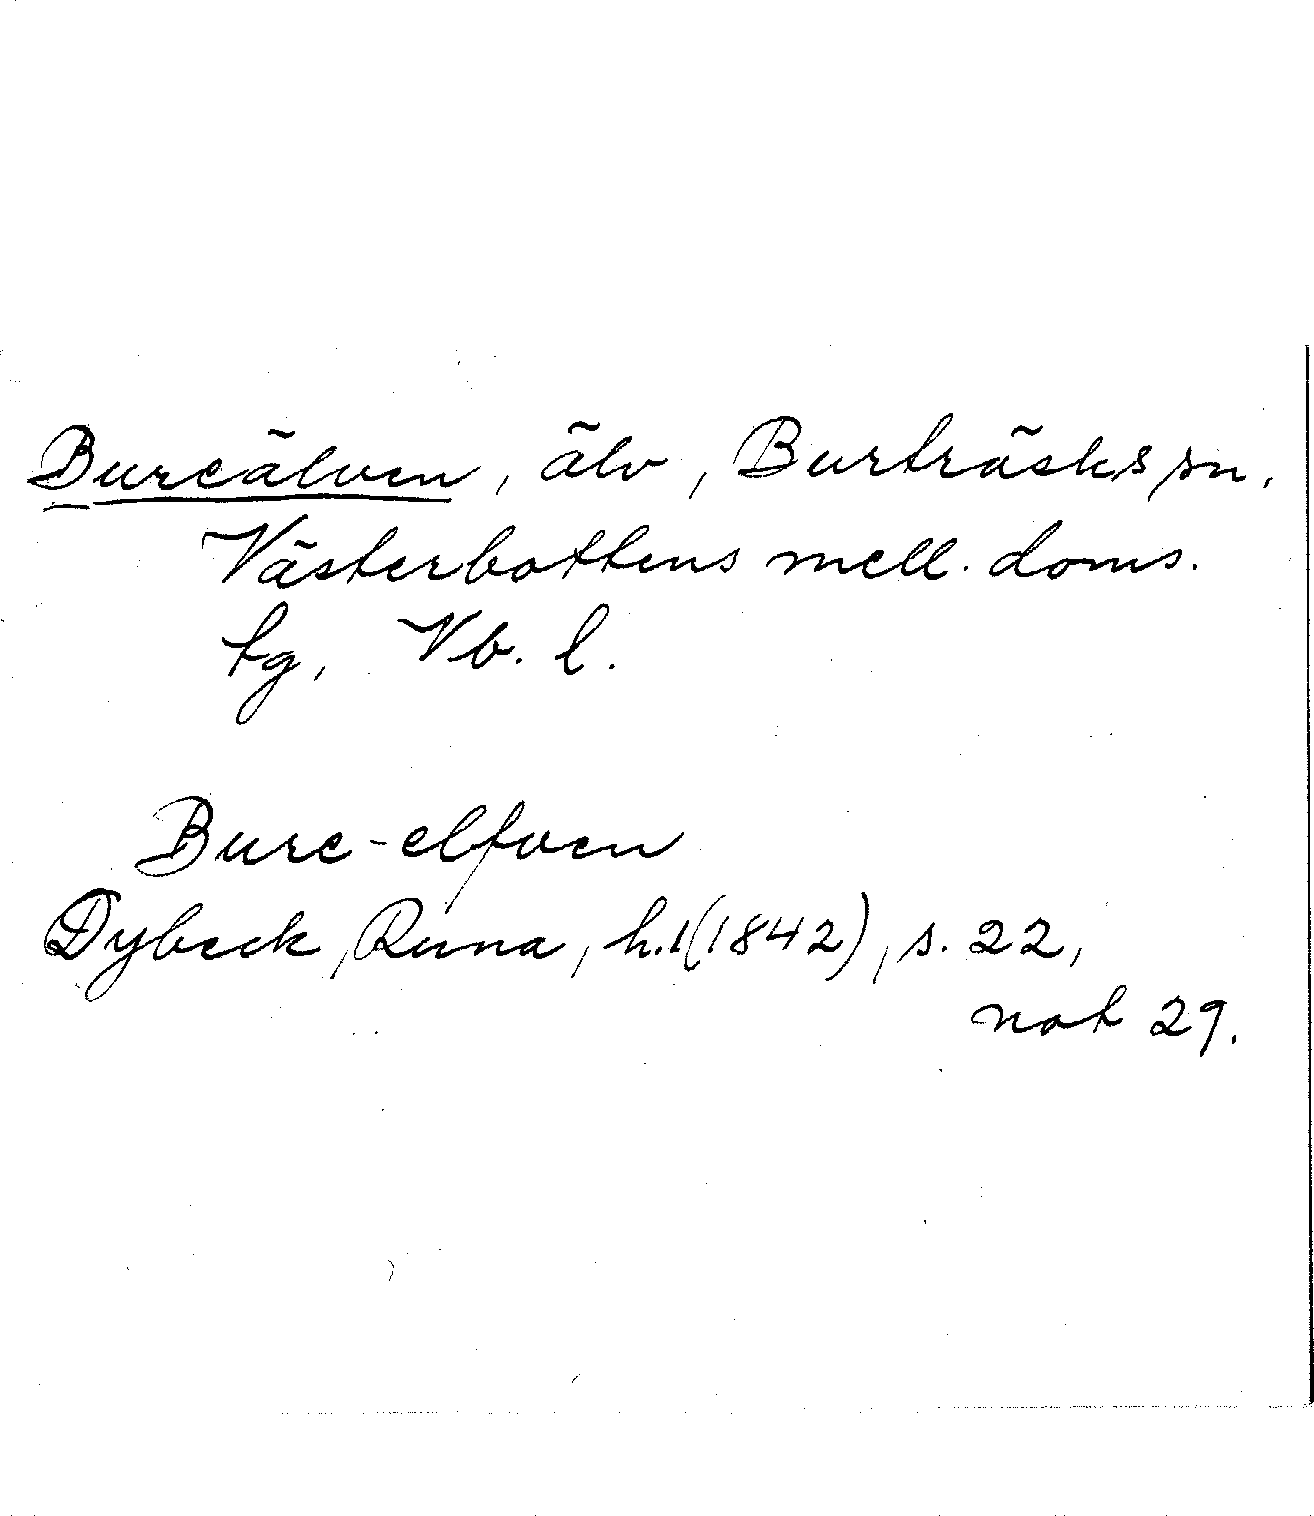 Bureälven, älv, Burträsks sn,
Västerbottens mell. doms.
tg, Vb. l.
Bure-elfven
Dybeck, Runa, h.1(1842), s. 22,
not 29.